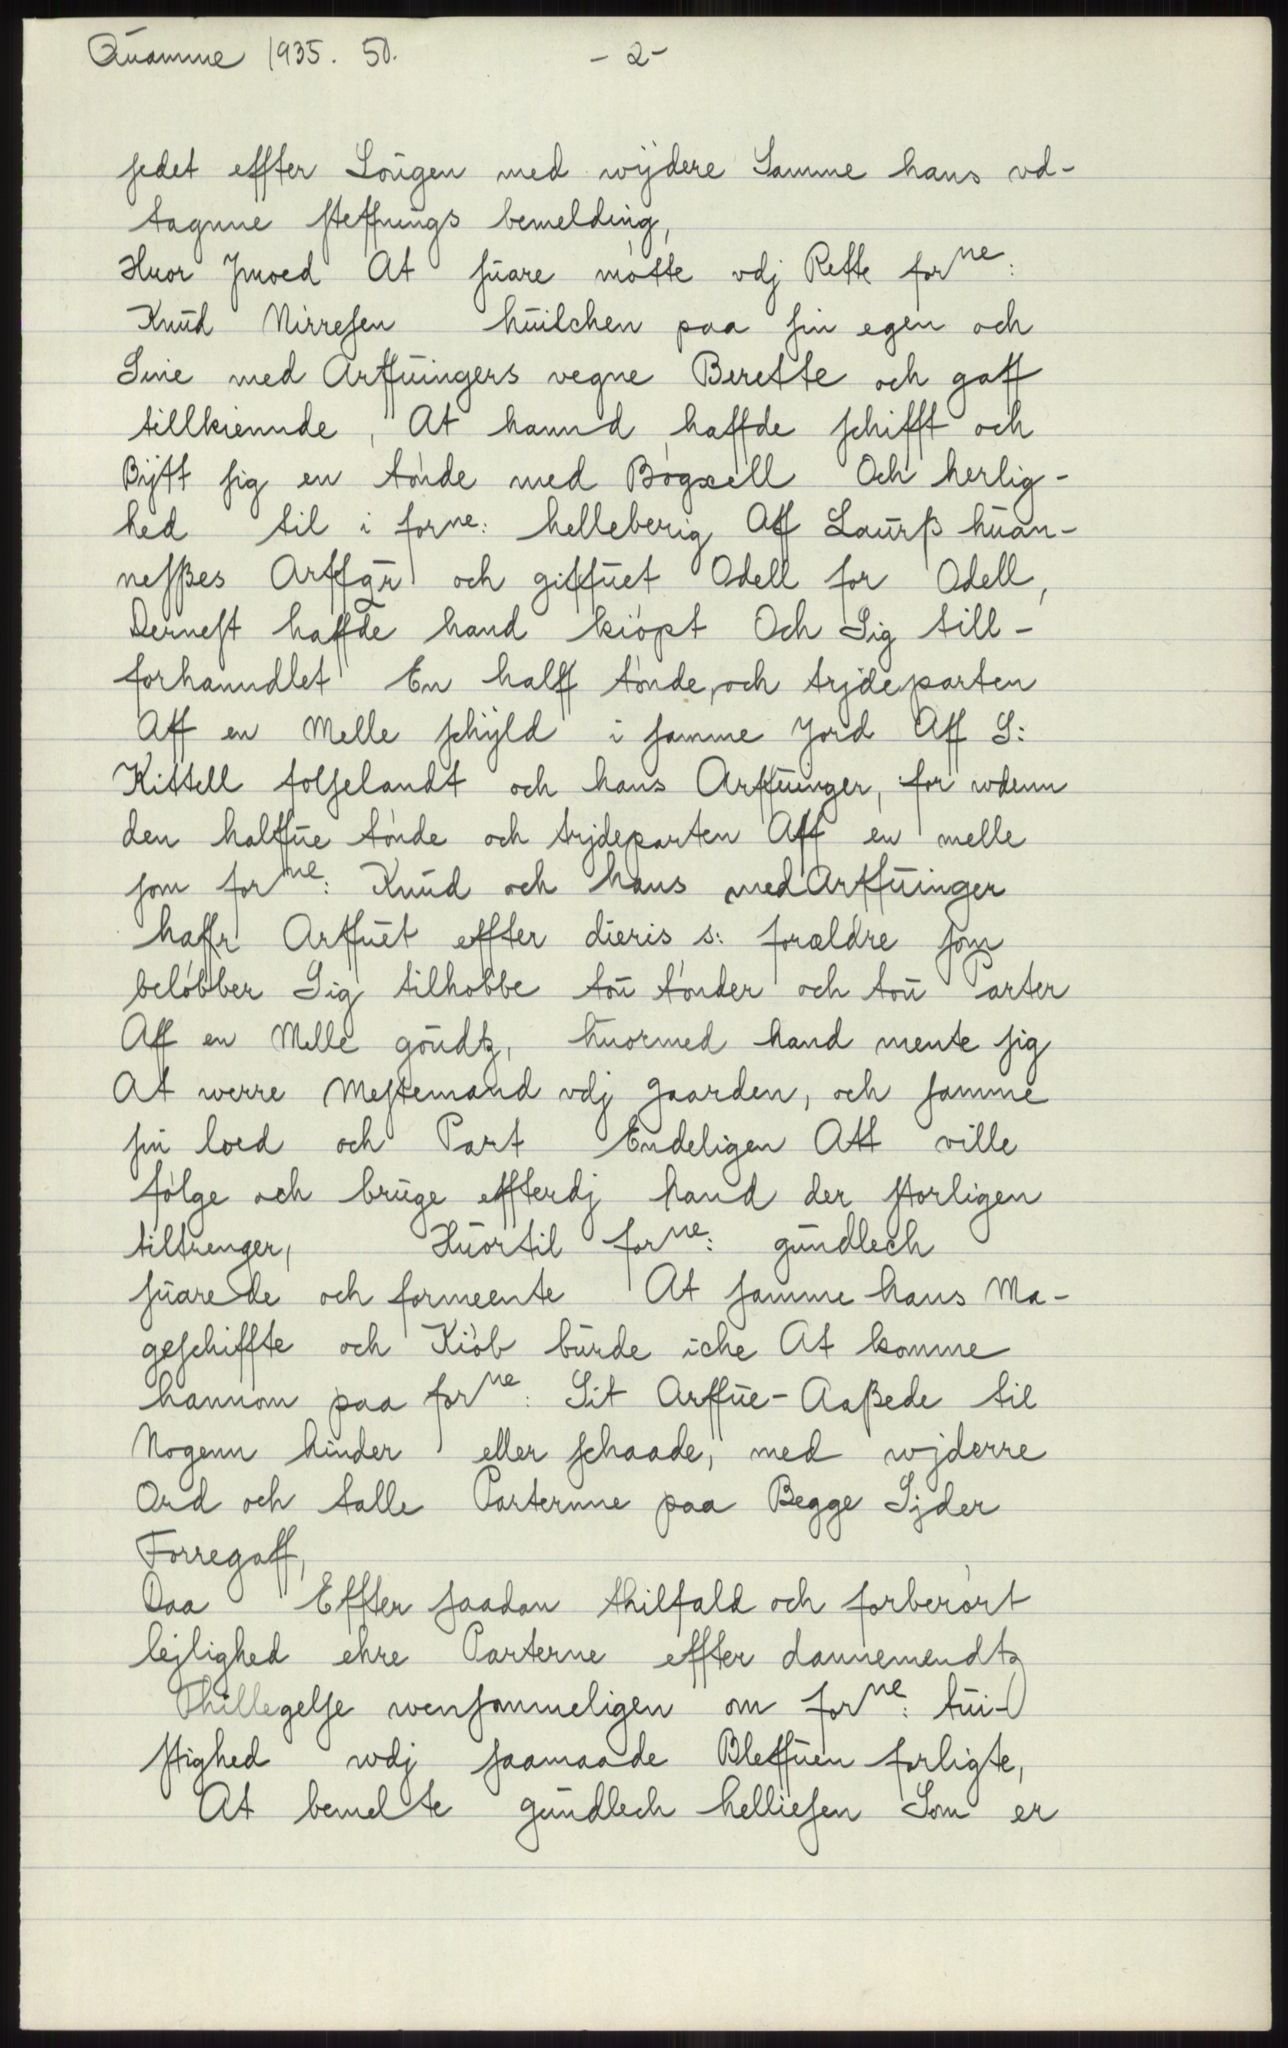 Quamme 1935. 50. - 2 -
sedet effter Lougen med wijdere Samme hans vd-
tagnne steffnings bemelding,
Huor Jmoed At suare møtte vdj Rette forne:
Knud Nirresen huilchen paa sin egen och
Sine med Arffuingers vegne Berette och gaff
tillkiennde, At hannd haffde schifft och
Bÿtt sig en tønde med Bøgxell Och herlig-
hed til i forne: helleberig Aff Laurß huan-
nesßes Arffgr och giffuet Odell for Odell,
Dernest haffde hand kiøpt Och Sig till-
forhanndlet En halff tønde, och trjdeparten
Aff en Melle schÿld i samme Jord Aff S:
Kittell folselandt och hans Arffuinger, for wdenn
den halffue tønde och trjdeparten Aff en melle
som forne: Knud och hans medArffuinger
haffr Arffuet effter dieris s: forældre som
beløbber Sig tilhobbe tou tønder och tou Parter
Aff en Melle goudtz, huormed hand mente sig
At werre Mestemand vdj gaarden, och samme
sin loed och Part Endeligen Att ville
følge och bruge effterdj hand der storligen
tiltrenger, Huortil forne: gundlech
suarede och formeente At samme hans Ma-
geschiffte och Kiøb burde iche At komme
hannom paa forne: Sit Arffue-Aaßede til
Nogenn hinder eller schaade, med wjderre
Ord och talle Parternne paa Begge Sijder
Forregaff,
Daa Effter saadan thilfald och forberørt
lejlighed ehre Parterne effter dannemendtz
Thillegelse wensommeligen om forne: tui-
stighed wdj saamaade Bleffuen forligte,
At bemelte gundlech helliesen Som er